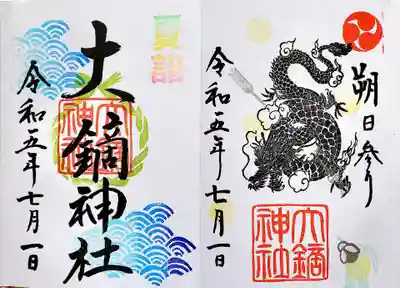 夏詣
大鏑神社
大鏑
神社
令和五年七月一日
朔日参り
令和五年七月一日
大鏑
神社